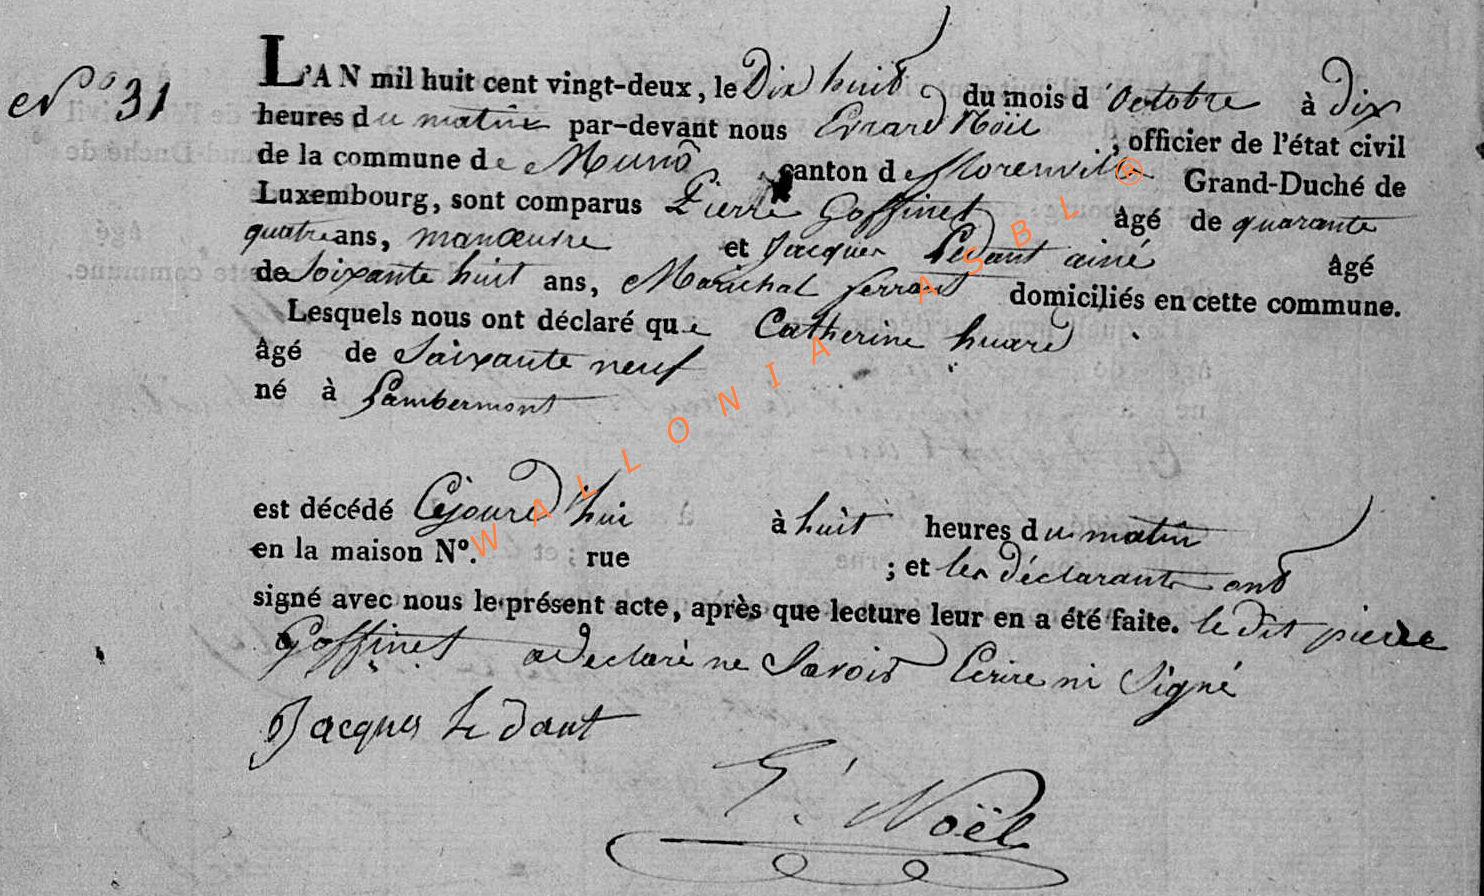 N° 31
L'AN mil huit cent vingt-deux, le Dix huit du mois d'octobre à dix
heures du matin par-devant nous Evrard Noël, officier de l'état civil
de la commune de Muno canton de florenville Grand-Duché de
Luxembourg, sont comparus Pierre Goffinet âgé de quarante
quatre ans, manœuvre et Jacques Ledant ainé âgé
de soixante huit ans, Marichal ferrant domiciliés en cette commune.
Lesquels nous ont déclaré que Catherine huard
âgé de Soixante neuf
né à Lambermont
est décédé Cejourd'hui à huit heures du matin
en la maison N°. rue ; et les déclarants ont
signé avec nous le présent acte, après que lecture leur en a été faite. le dit pierre
Goffinet a Declaré ne Savoir Ecrire ni Signé
Jacques Le dant
E. Noël
WALLONIA ASBL ®